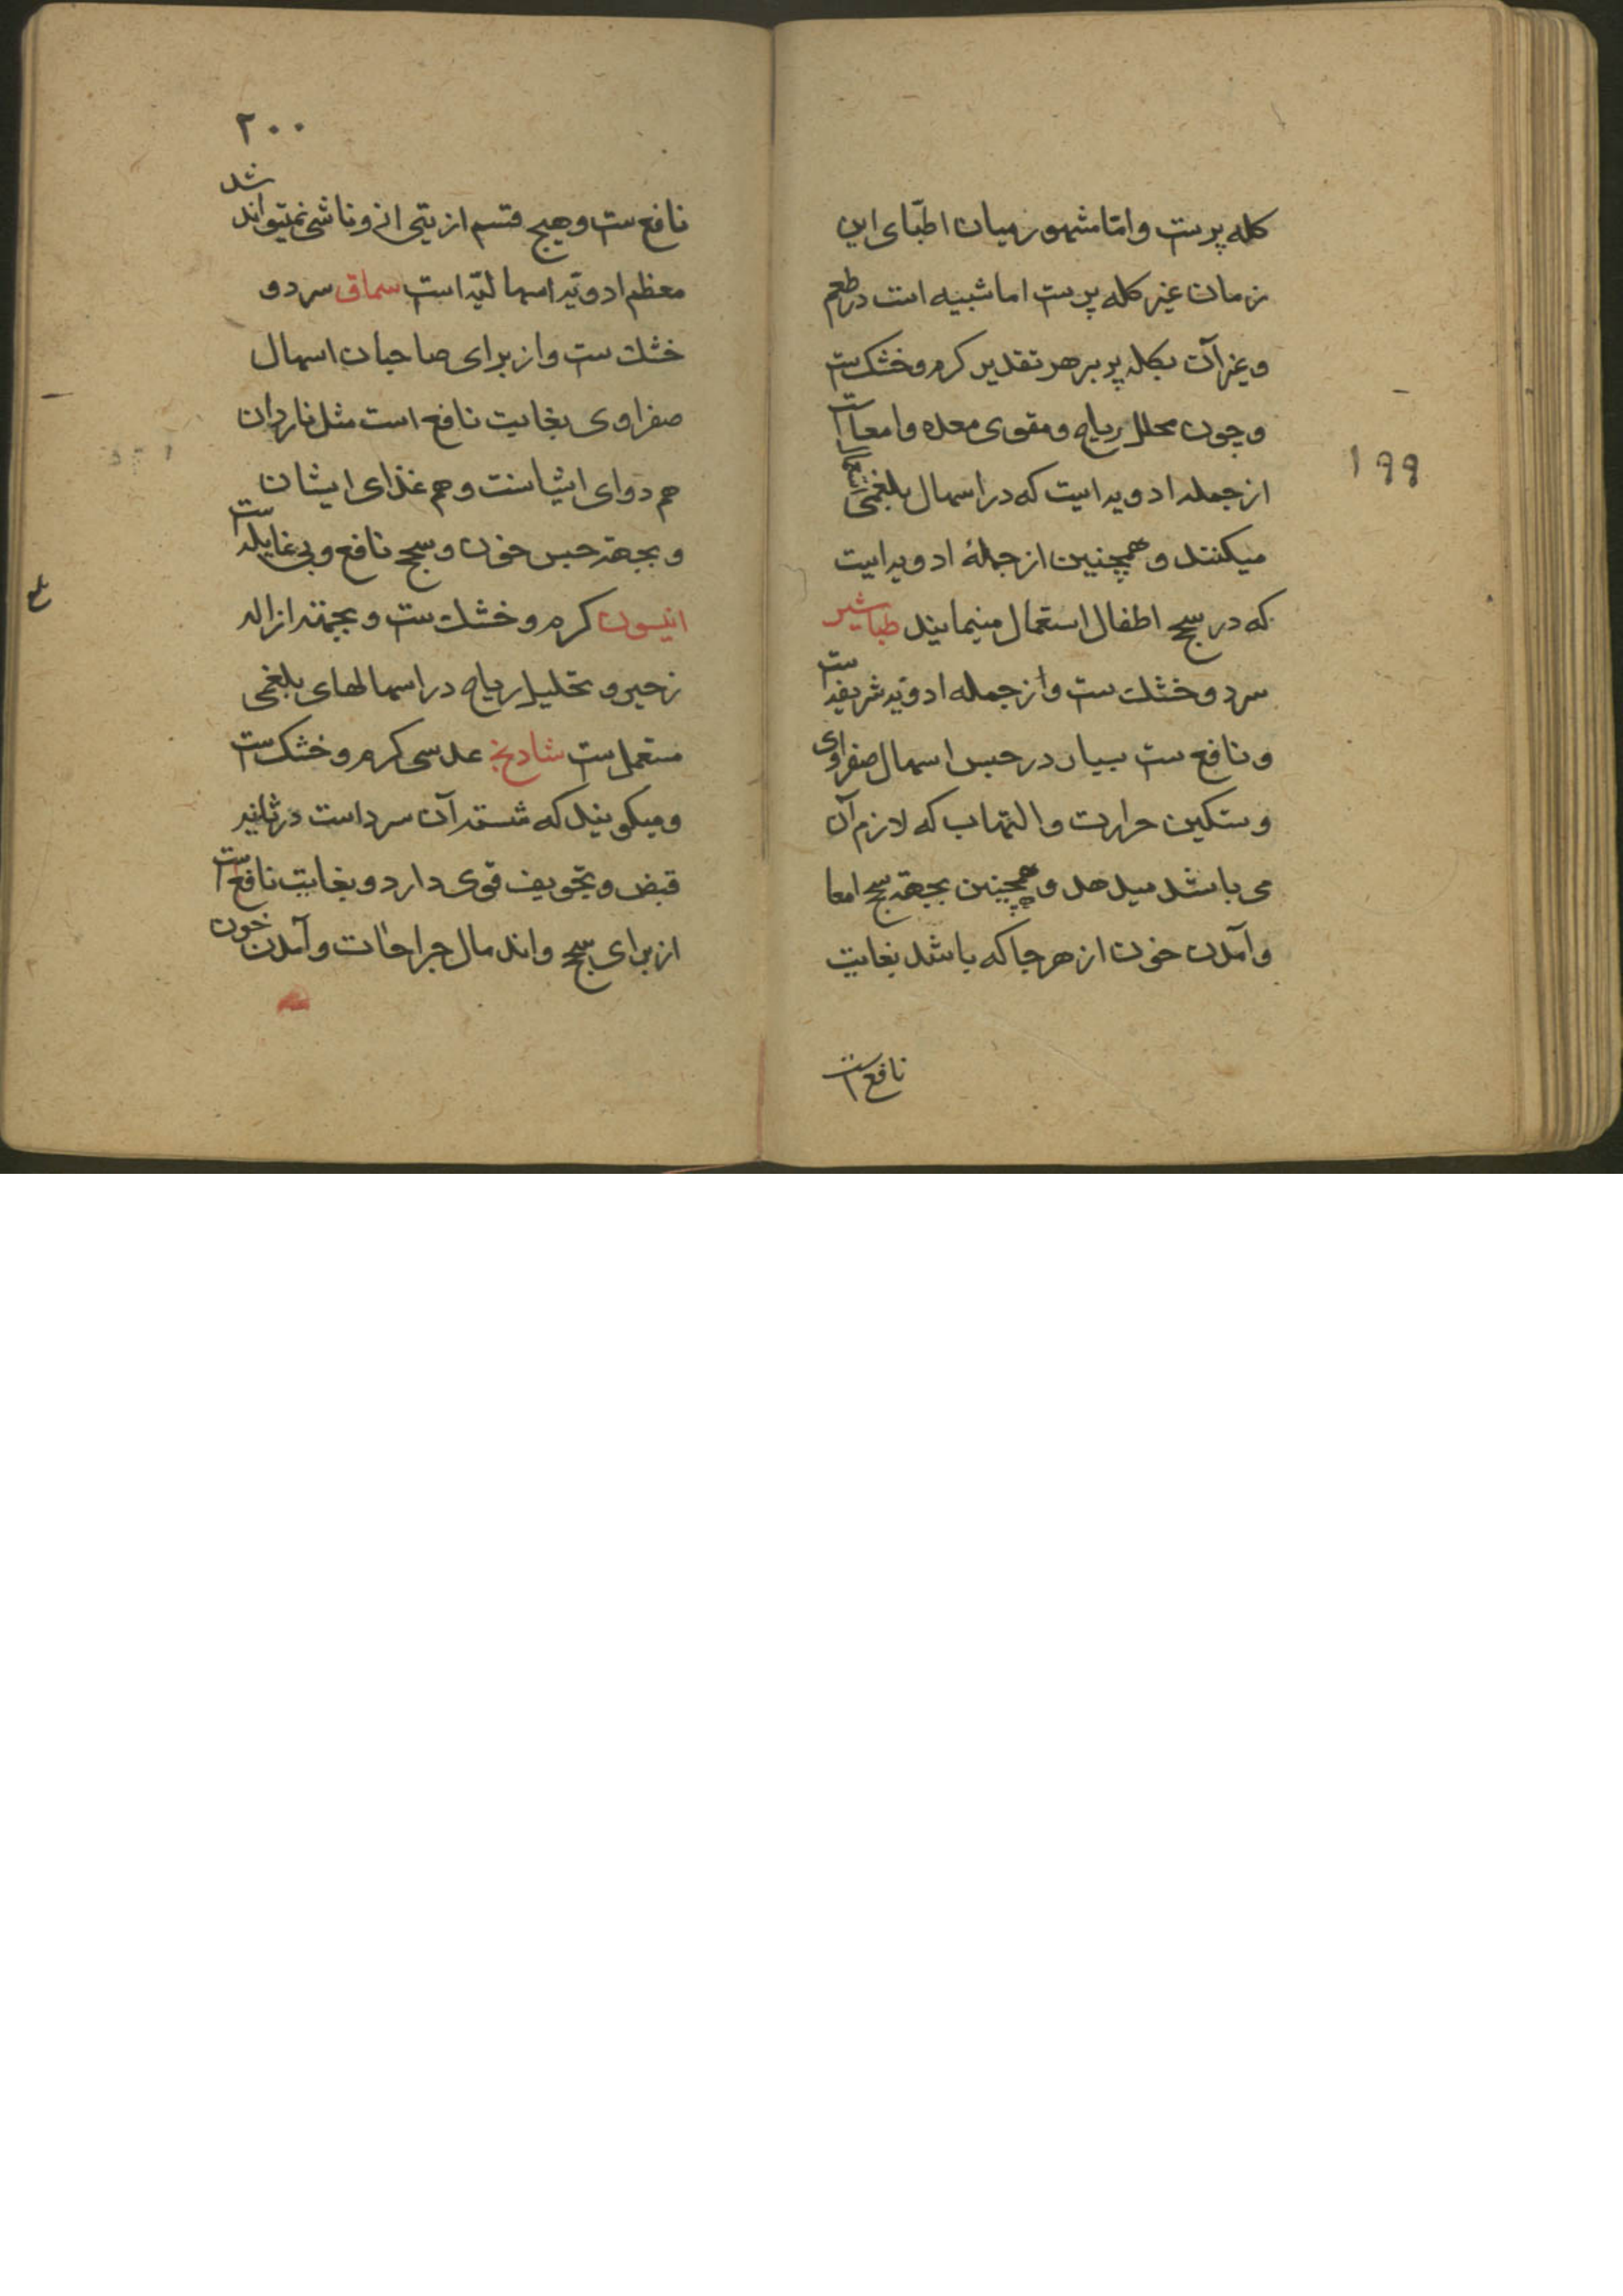 کله پرست و امّا مشهور میان اطبّای این
زمان غیر کله پرست اما شبیه است در طعم
و غیر آن بکله پر بر هر تقدیر کرم و خشکست
و چون محلل ریاح و مقوی معده و امعا است
از جمله ادویه ایست که در اسهال بلغمی استعمال
میکنند و همچنین از جملهٔ ادویه ایست
که در سحج اطفال استعمال مینمایند طباشیر
سرد و خشک ست و از جمله ادویّه شریفه است
و نافع ست بسیار در حبس اسهال صفراوی
و تسکین حرارت و التهاب که لازم آن
می باشد میدهد و همچنین بجهة سحج امعا
و آمدن خون از هر جا که باشد بغایت
نافع است
۱۹۹
۲۰۰
نافع ست و هیچ قسم از یتی از و ناشی نمیتواند شد
معظم ادویّه اسهالیّه است سماق سرد و
خشک ست و از برای صاحبان اسهال
صفراوی بغایت نافع است مثل ناردان
هم دوای ایشانست و هم غذای ایشان
و بجهة حبس خون و سحج نافع و بی غایله است
انیسون کرم و خشک ست و بجهته ازاله
زحیر و تحلیل ریاح در اسهالهای بلغمی
مستعمل ست شادنج عدسی کرم و خشک ست
و میکویند که شسته آن سرد است در ثانیه
قبض و تجویف قوی دارد و بغایت نافع است
از برای سحج و اندمال جراحات و آمدن خون